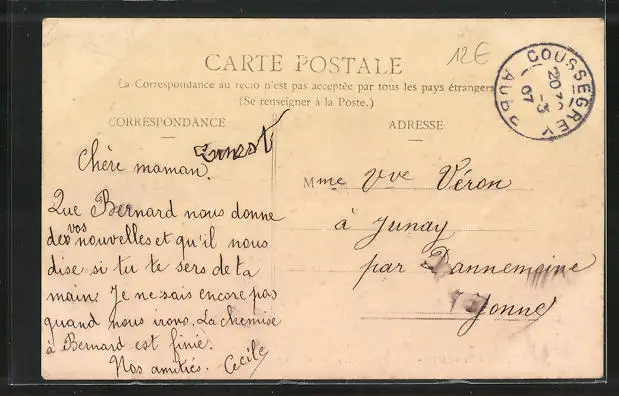 12€
CARTE POSTALE
La Correspondance au recto n'est pas acceptée par tous les pays étrangers
(Se renseigner à la Poste.)
COUSSEGREY
AUBE
20
-3
07
CORRESPONDANCE
Ernest
Chère maman.
Que Bernard nous donne
de vos nouvelles et qu'il nous
dise si tu te sers de ta
main. Je ne sais encore pas
quand nous irons. La chemise
à Bernard est finie.
Nos amitiés. Cecile
ADRESSE
Mme Vve Véron
à Junay
par Dannemoine
Yonne